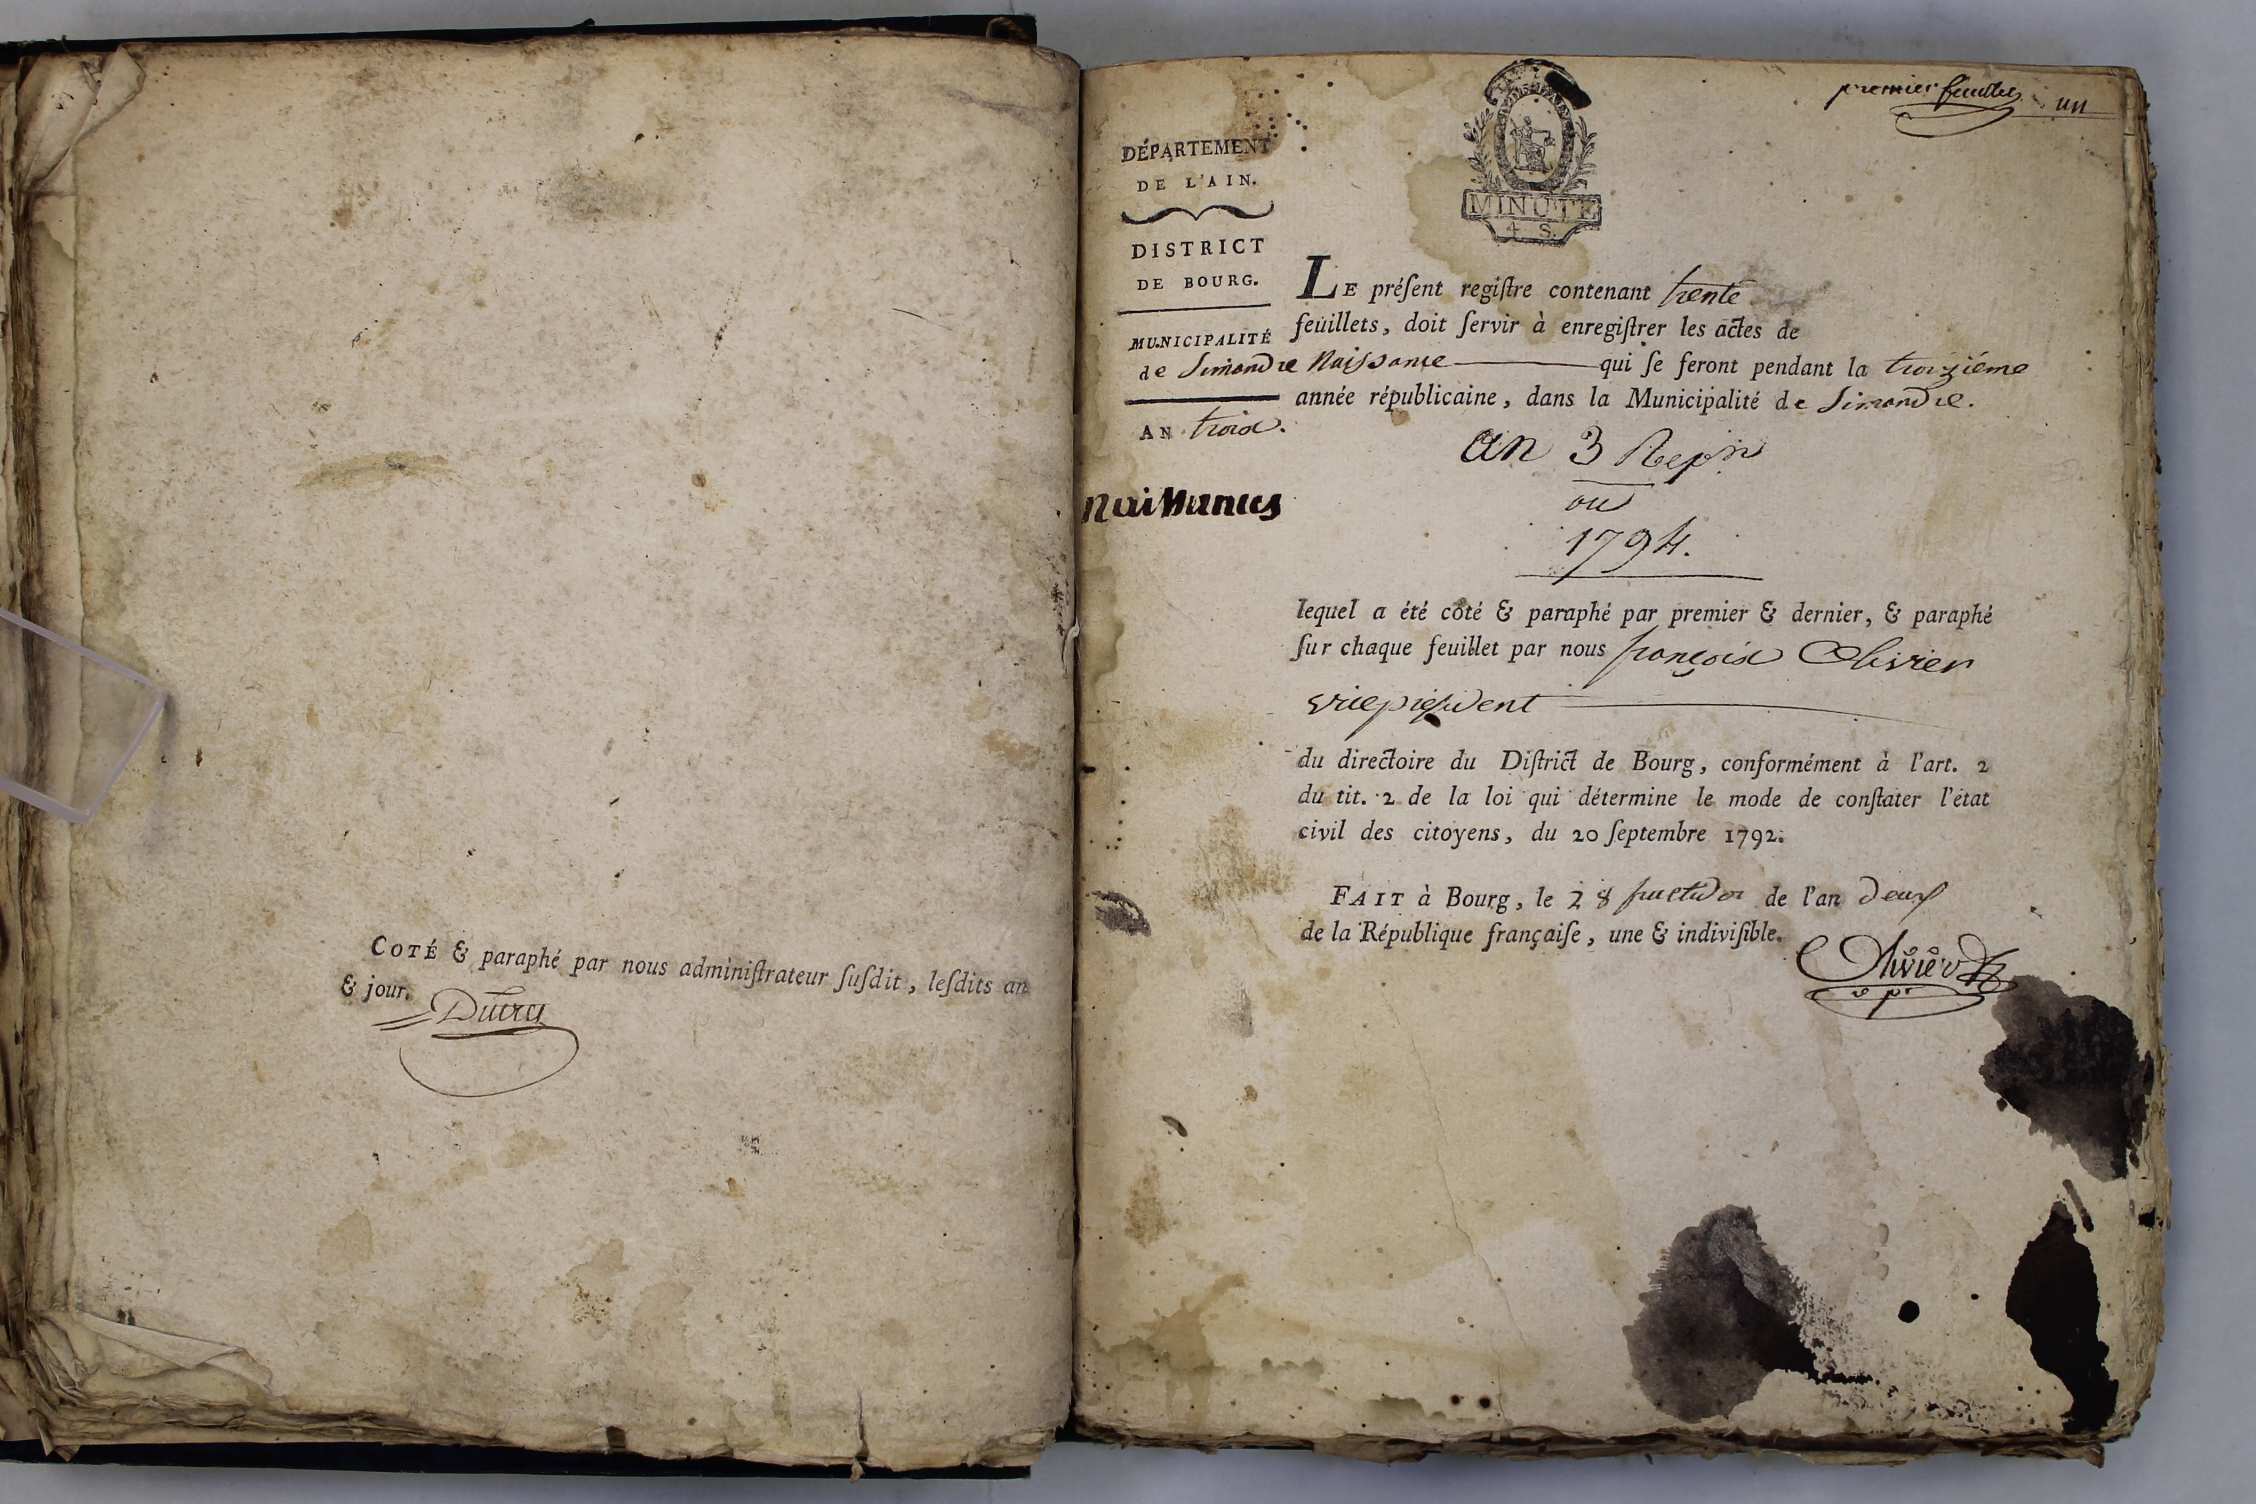 COTÉ & paraphé par nous administrateur susdit, lesdits an
& jour.
premier feuillet un
MINUTE
4 S.
DÉPARTEMENT
DE L'AIN.
DISTRICT
DE BOURG.
MUNICIPALITÉ
de Simandre
AN trois.
Naissances
LE préſent regiſtre contenant trente
feuillets, doit ſervir à enregiſtrer les actes de
Naissance qui ſe feront pendant la troiziéme
année républicaine, dans la Municipalité de Simandre.
an 3 Repn
ou
1794.
lequel a été coté & paraphé par premier & dernier, & paraphé
ſur chaque feuillet par nous françois Olivier
vicepresident
du directoire du Diſtrict de Bourg, conformément à l'art. 2
du tit. 2 de la loi qui détermine le mode de conſtater l'état
civil des citoyens, du 20 ſeptembre 1792.
FAIT à Bourg, le 28 fructidor de l'an deux
de la République françaiſe, une & indiviſible.
Olivier
v pr